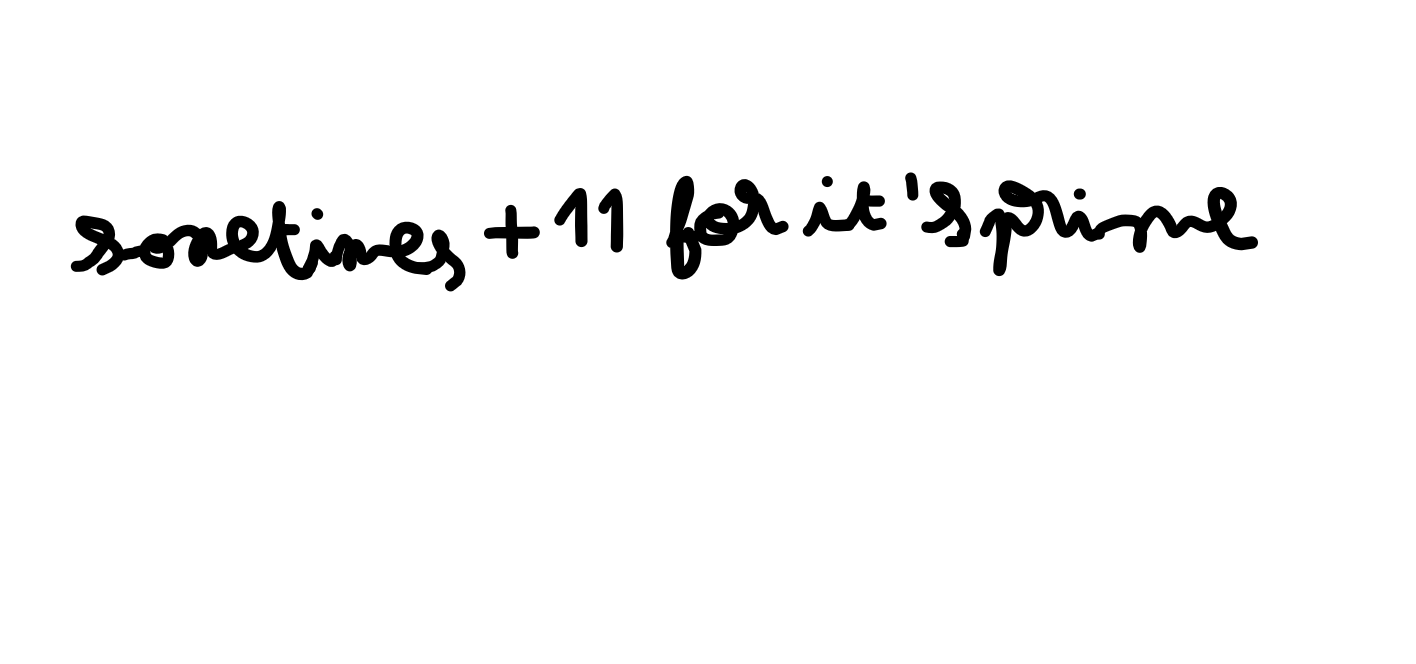 sometimes +11 for it's prime